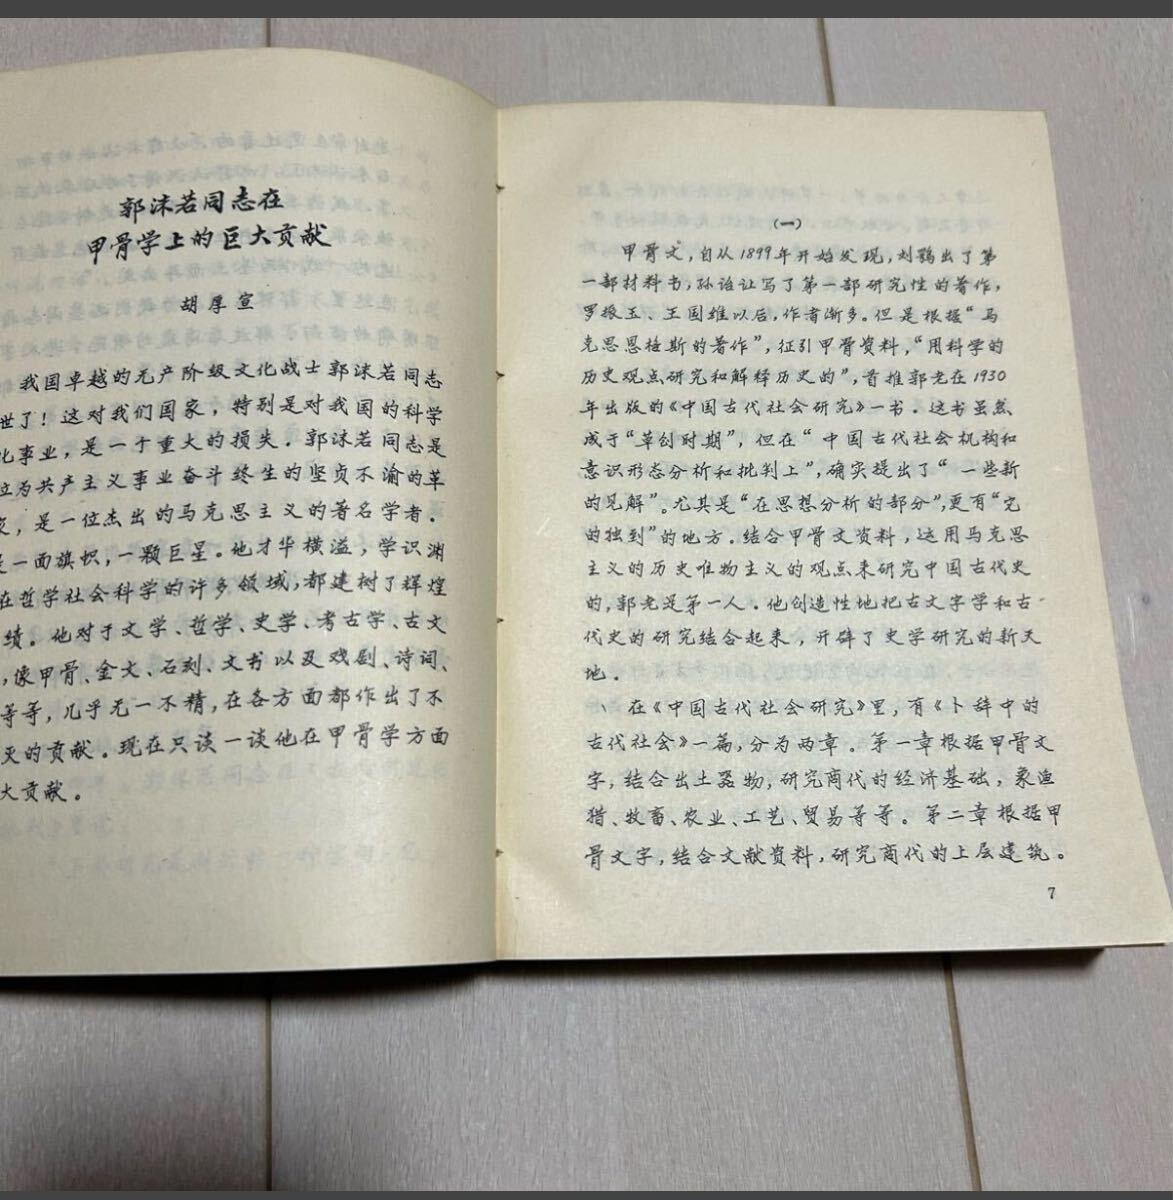 郭沫若同志在
甲骨学上的巨大贡献
胡厚宣
我国卓越的无产阶级文化战士郭沫若同志
世了！这对我们国家，特别是对我国的科学
化事业，是一个重大的损失．郭沫若同志是
位为共产主义事业奋斗终生的坚贞不渝的革
家，是一位杰出的马克思主义的著名学者．
是一面旗帜，一颗巨星。他才华横溢，学识渊
在哲学社会科学的许多领域，都建树了辉煌
绩。他对于文学、哲学、史学、考古学、古文
，像甲骨、金文、石刻、文书以及戏剧、诗词、
等等，几乎无一不精，在各方面都作出了不
灭的贡献。现在只谈一谈他在甲骨学方面
大贡献。
（一）
甲骨文，自从1899年开始发现，刘鹗出了第
一部材料书，孙诒让写了第一部研究性的著作，
罗振玉、王国维以后，作者渐多。但是根据“马
克思恩格斯的著作”，征引甲骨资料，“用科学的
历史观点研究和解释历史的”，首推郭老在1930
年出版的《中国古代社会研究》一书．这书虽然
成于“草创时期”，但在“中国古代社会机构和
意识形态分析和批判上”，确实提出了“一些新
的见解”。尤其是“在思想分析的部分”，更有“它
的独到”的地方．结合甲骨文资料，运用马克思
主义的历史唯物主义的观点来研究中国古代史
的，郭老是第一人．他创造性地把古文字学和古
代史的研究结合起来，开辟了史学研究的新天
地．
在《中国古代社会研究》里，有《卜辞中的
古代社会》一篇，分为两章．第一章根据甲骨文
字，结合出土器物，研究商代的经济基础，象渔
猎、牧畜、农业、工艺、贸易等等。第二章根据甲
骨文字，结合文献资料，研究商代的上层建筑。
7